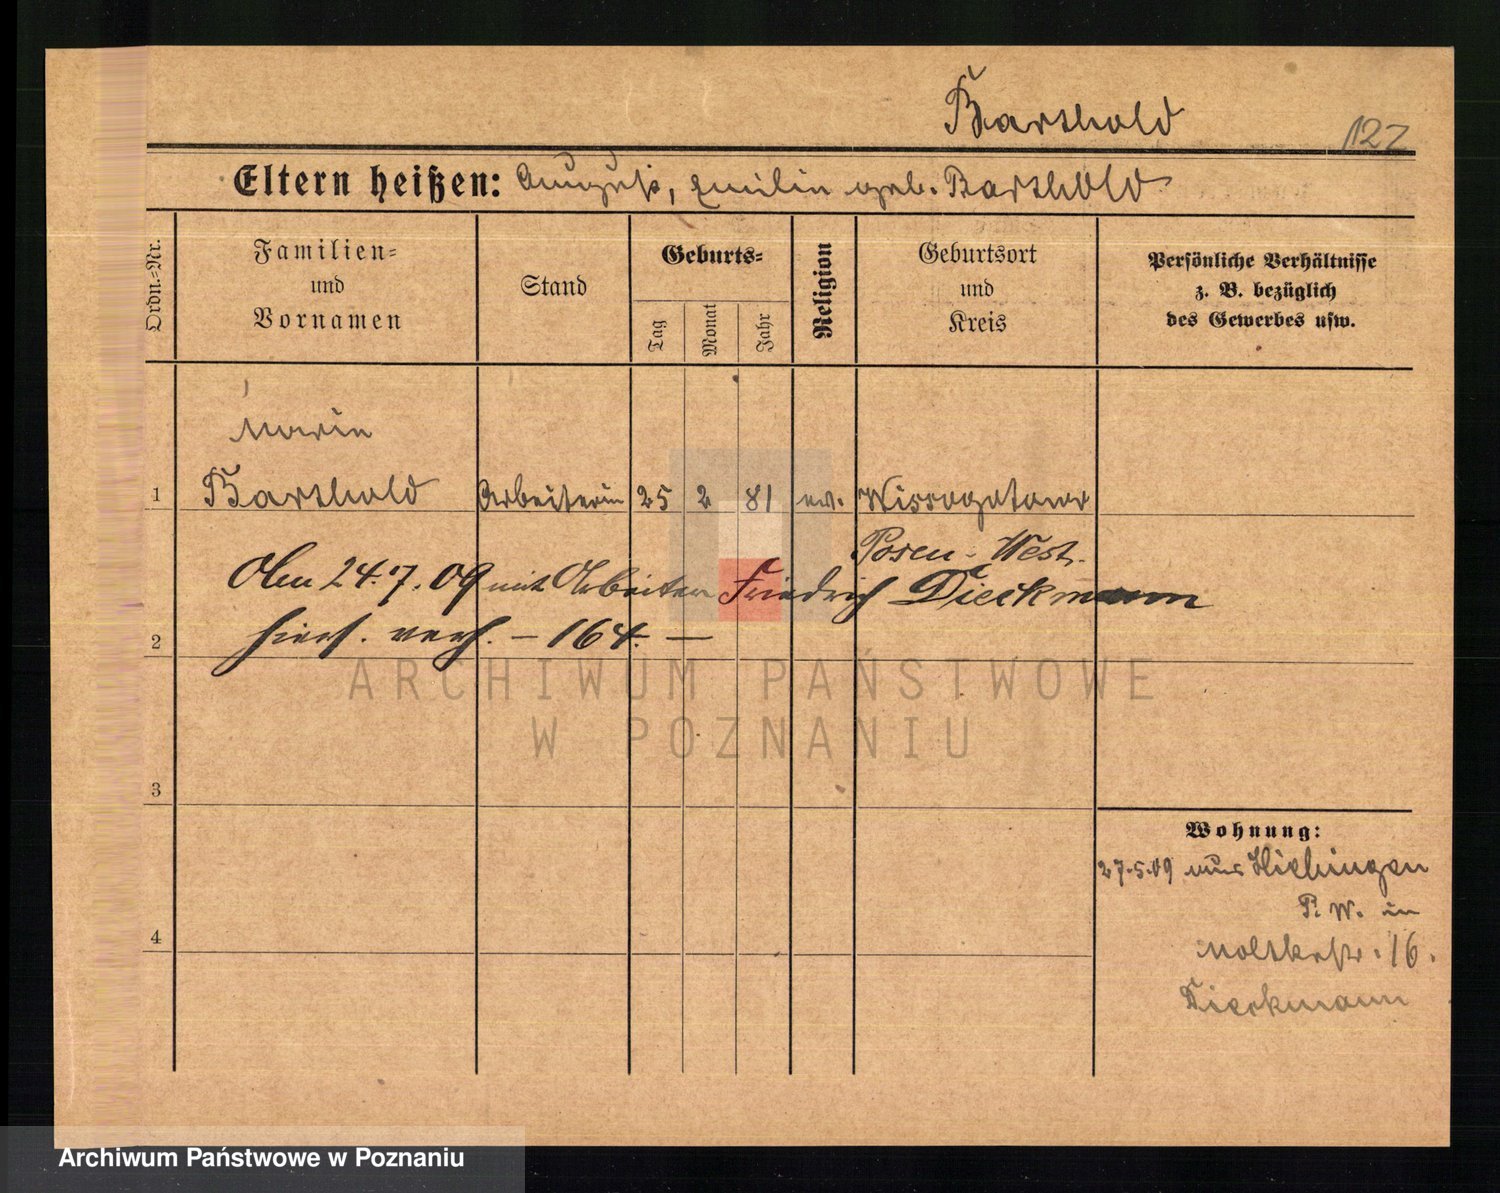 Barthold
122
Eltern heißen: August, Emilie geb. Barthold
Ordn.-Nr.
Familien-
und
Vornamen
Stand
Geburts-
Tag
Monat
Jahr
Religion
Geburtsort
und
Kreis
Persönliche Verhältnisse
z. B. bezüglich
des Gewerbes usw.
Marie
1 Barthold Arbeiterin 25 2 81 ev.
Posen-West.
Am 24.7.09 mit Arbeiter Friedrich Dieckmann
2 hiers. verh. – 164. –
ARCHIWUM PAŃSTWOWE
W POZNANIU
3
Wohnung:
27.5.09 aus
P. W. in
4
Moltkestr. 16.
Dieckmann
Archiwum Państwowe w Poznaniu